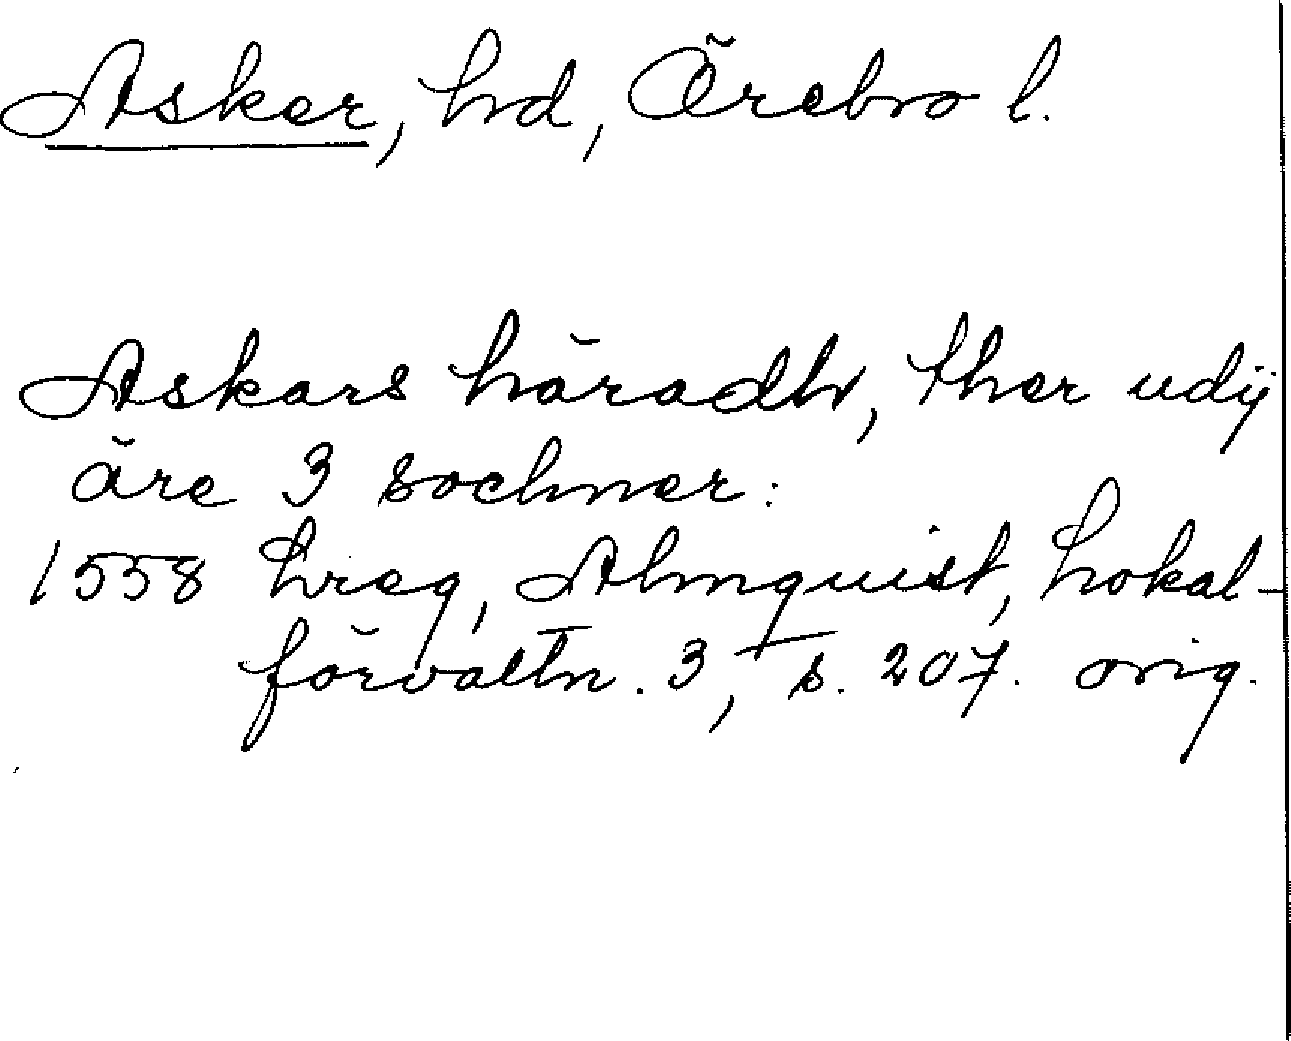 Asker, hd, Örebro l.
Askers häradh, ther udij
äre 3 sochner:
1558 hreg, Almquist, Lokal-
förvaltn. 3, s. 207. orig.